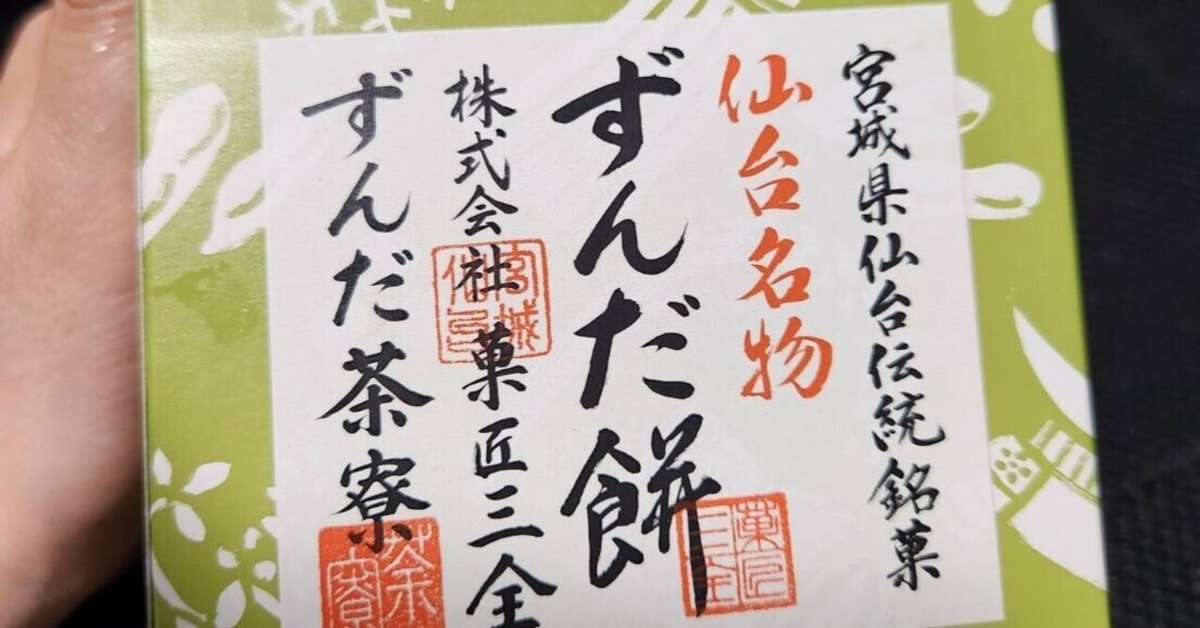 宮城県仙台伝統銘菓
仙台名物
ずんだ餅
菓匠
三全
株式会社菓匠三全
宮城
ずんだ茶寮
茶
寮